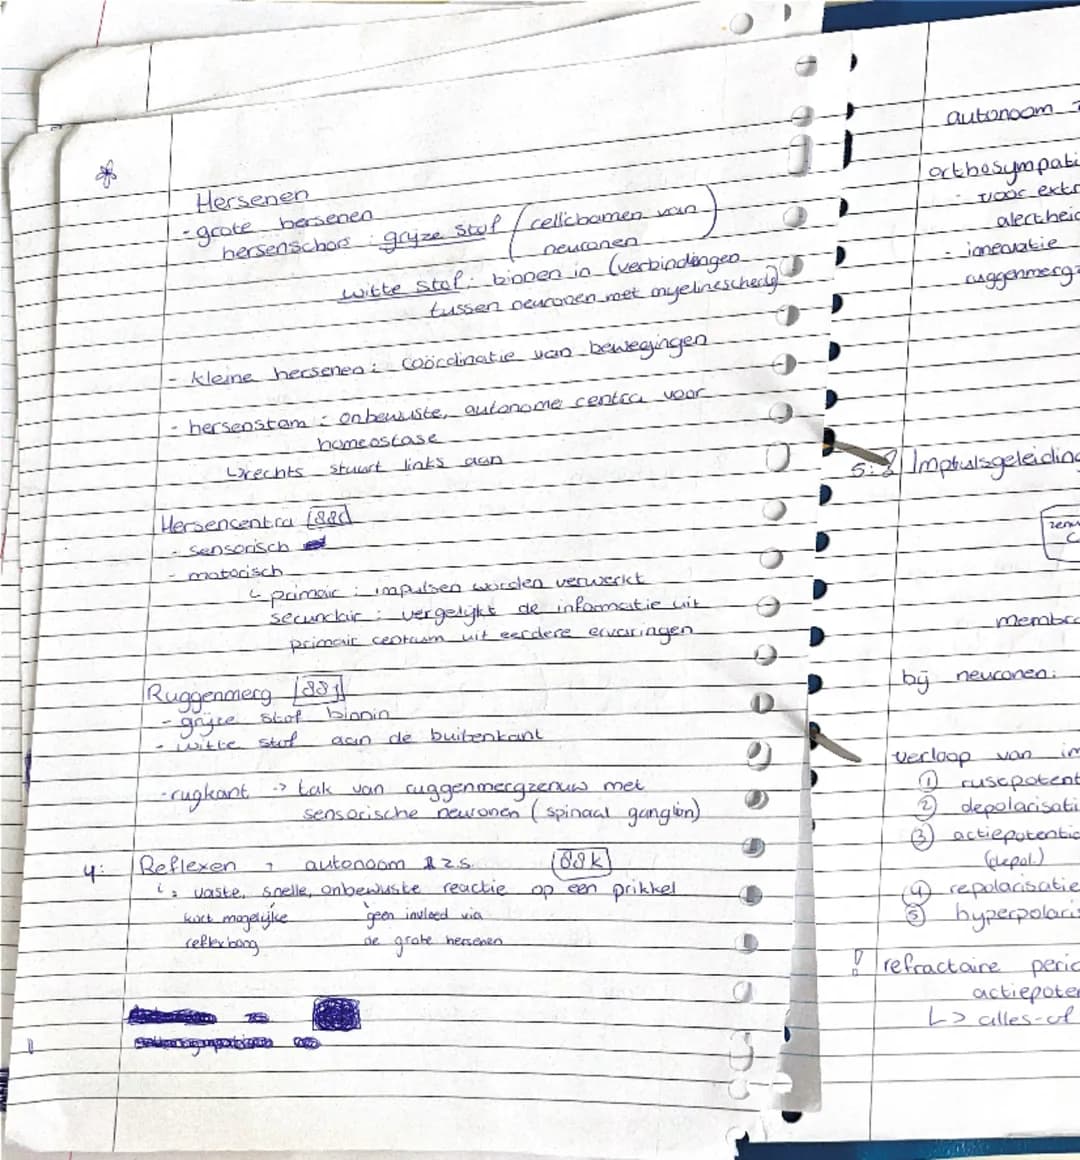 Hersenen
- grote hersenen
hersenschors : grijze stof (cellichamen van
neuronen)
witte stof : binnen in (verbindingen
tussen neuronen met myelineschede)
- kleine hersenen : coördinatie van bewegingen
- hersenstam : onbewuste, autonome centra voor
homeostase
↳ rechts stuurt links aan
Hersencentra [88c]
- sensorisch
- motorisch
↳ primair : impulsen worden verwerkt
secundair : vergelijkt de informatie uit
primair centrum uit eerdere ervaringen
Ruggenmerg [88j]
- grijze stof binnin
- witte stof aan de buitenkant
- rugkant -> tak van ruggenmergzenuw met
sensorische neuronen (spinaal ganglion)
4: Reflexen , autonoom zs. [88k]
vaste, snelle, onbewuste reactie op een prikkel
kort mogelijke geen invloed via
reflexboog de grote hersenen
autonoom
orthosympati
- voor extr
alertheid
- innervatie
ruggenmerg
5: Impulsgeleiding
membra
bij neuronen:
verloop van im
① rustpotent
② depolarisati
③ actiepotentia
(depol.)
④ repolarisatie
⑤ hyperpolaris
! refractaire perio
actiepoten
↳ alles-of